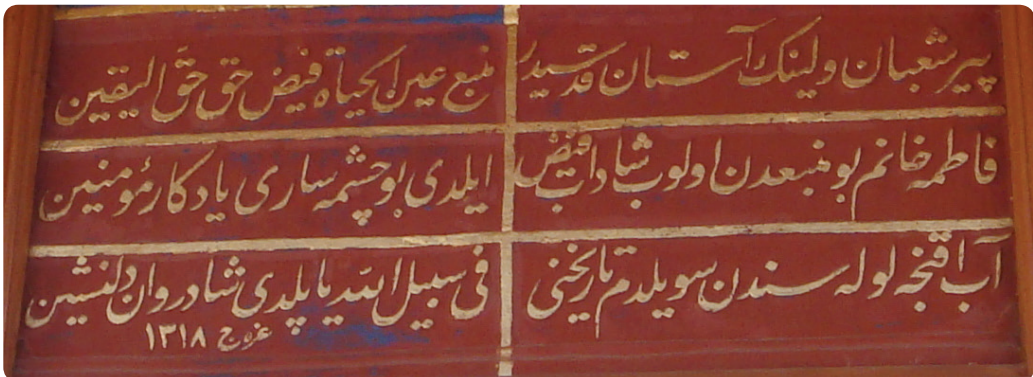 پیر شعبان ولینك آستان قدسیدر
منبع عین الحیاة فیض حق حق الیقین
فاطمه خانم بو منبعدن اولوب شاداب فیض
ایلدی بو چشمه ساری یادکار مؤمنین
آب آقنجه لوله سندن سویلدم تاریخنی
فی سبیل الله یاپلدی شادروان دلنشین
۱۳۱۸